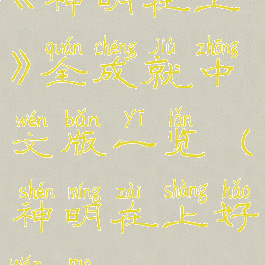 《神明在上
quán chéng jiù zhōng
》全成就中
wén bǎn yī lǎn
文版一览(
shén míng zài shàng hǎo
神明在上好